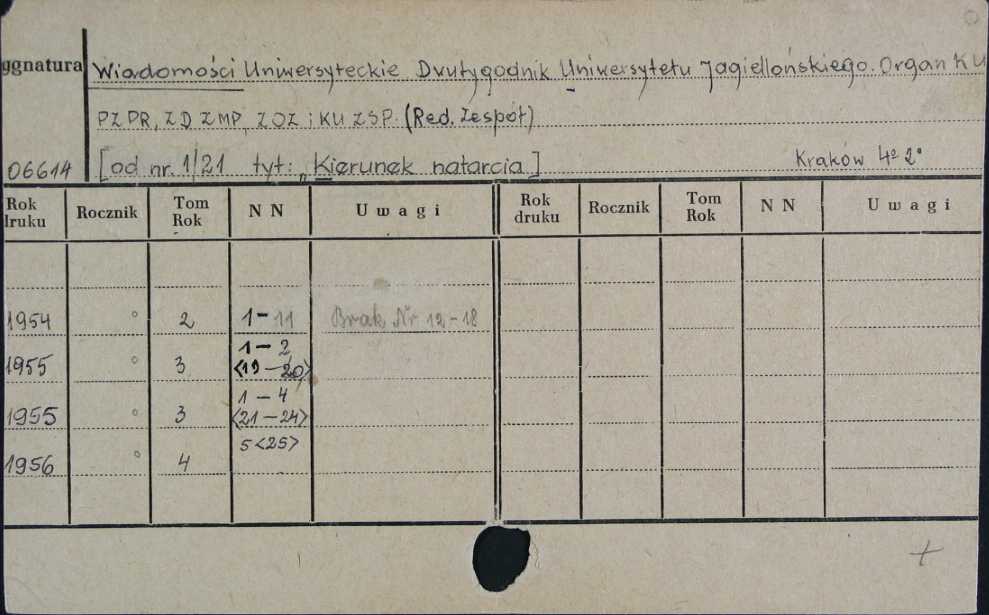 ygnatura Wiadomości Uniwersyteckie Dwutygodnik Uniwersytetu Jagiellońskiego. Organ KU
PZPR, ZD ZMP, ZOZ i KU ZSP. (Red. Zespół)
06614 [od nr. 1/21 tyt: „Kierunek natarcia] Kraków 4º 2º
Rok druku Rocznik Tom Rok N N Uwagi Rok druku Rocznik Tom Rok N N Uwagi
1954 ° 2 1-11 Brak Nr 12-18
1955 ° 3 1-2 <19-20>
1955 ° 3 1-4 <21-24>
1956 ° 4 5<25>
+